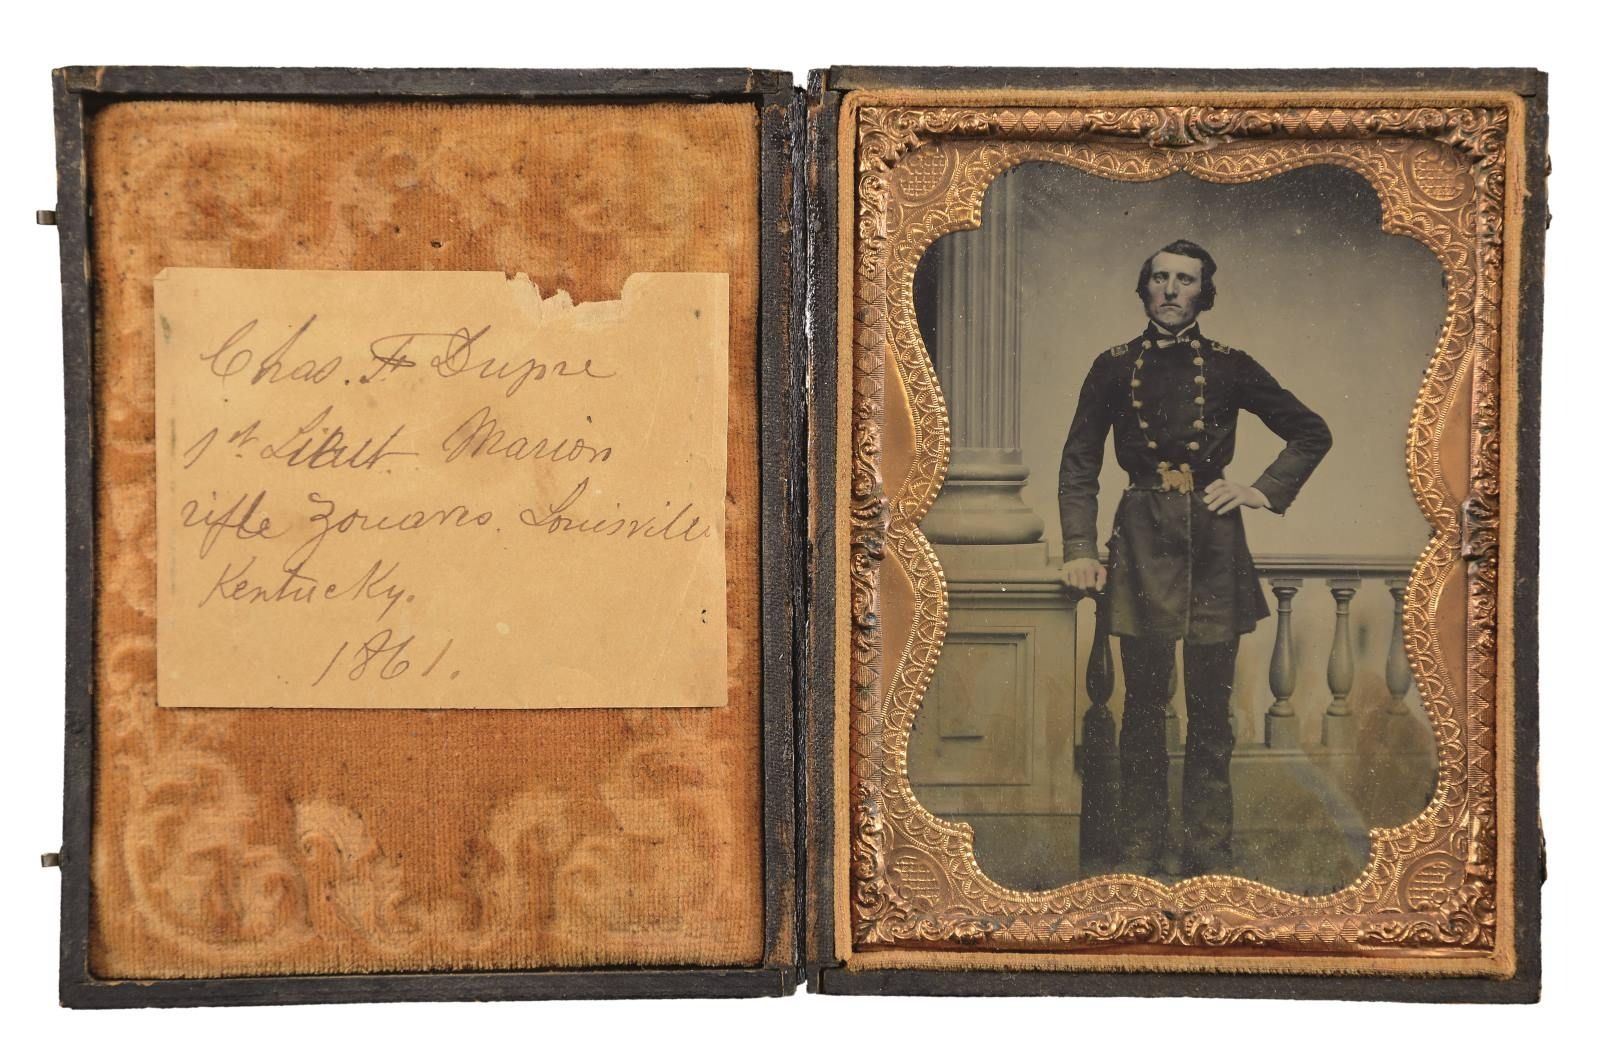 Chas. F Dupre
1st Lieut. Marion
rifle Zouaves. Louisville
Kentucky.
1861.